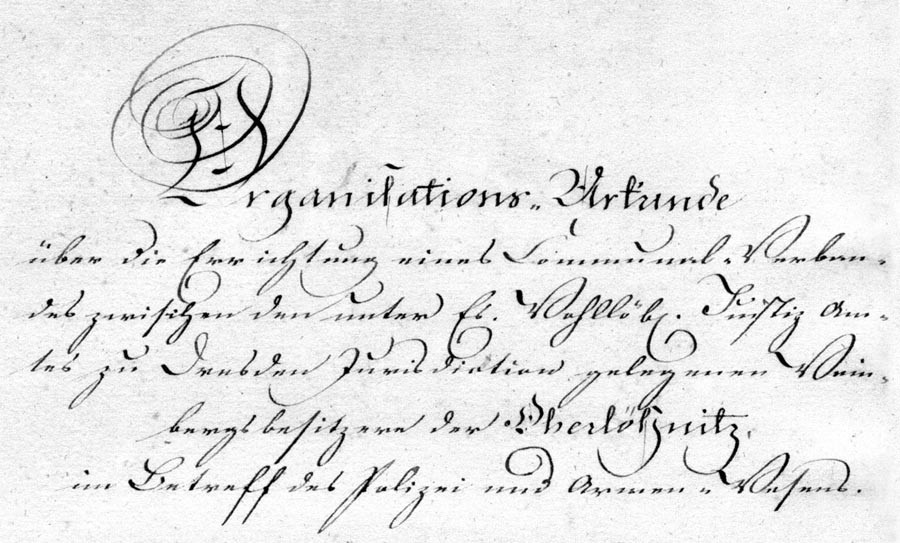 Organisations-Urkunde
über die Errichtung eines Communal-Verban-
des zwischen den unter Es. Wohllöbl. Justiz Am-
tes zu Dresden Jurisdiction gelegenen Wein-
bergsbesitzern der Oberlößnitz,
im Betreff des Polizei und Armen-Wesens.